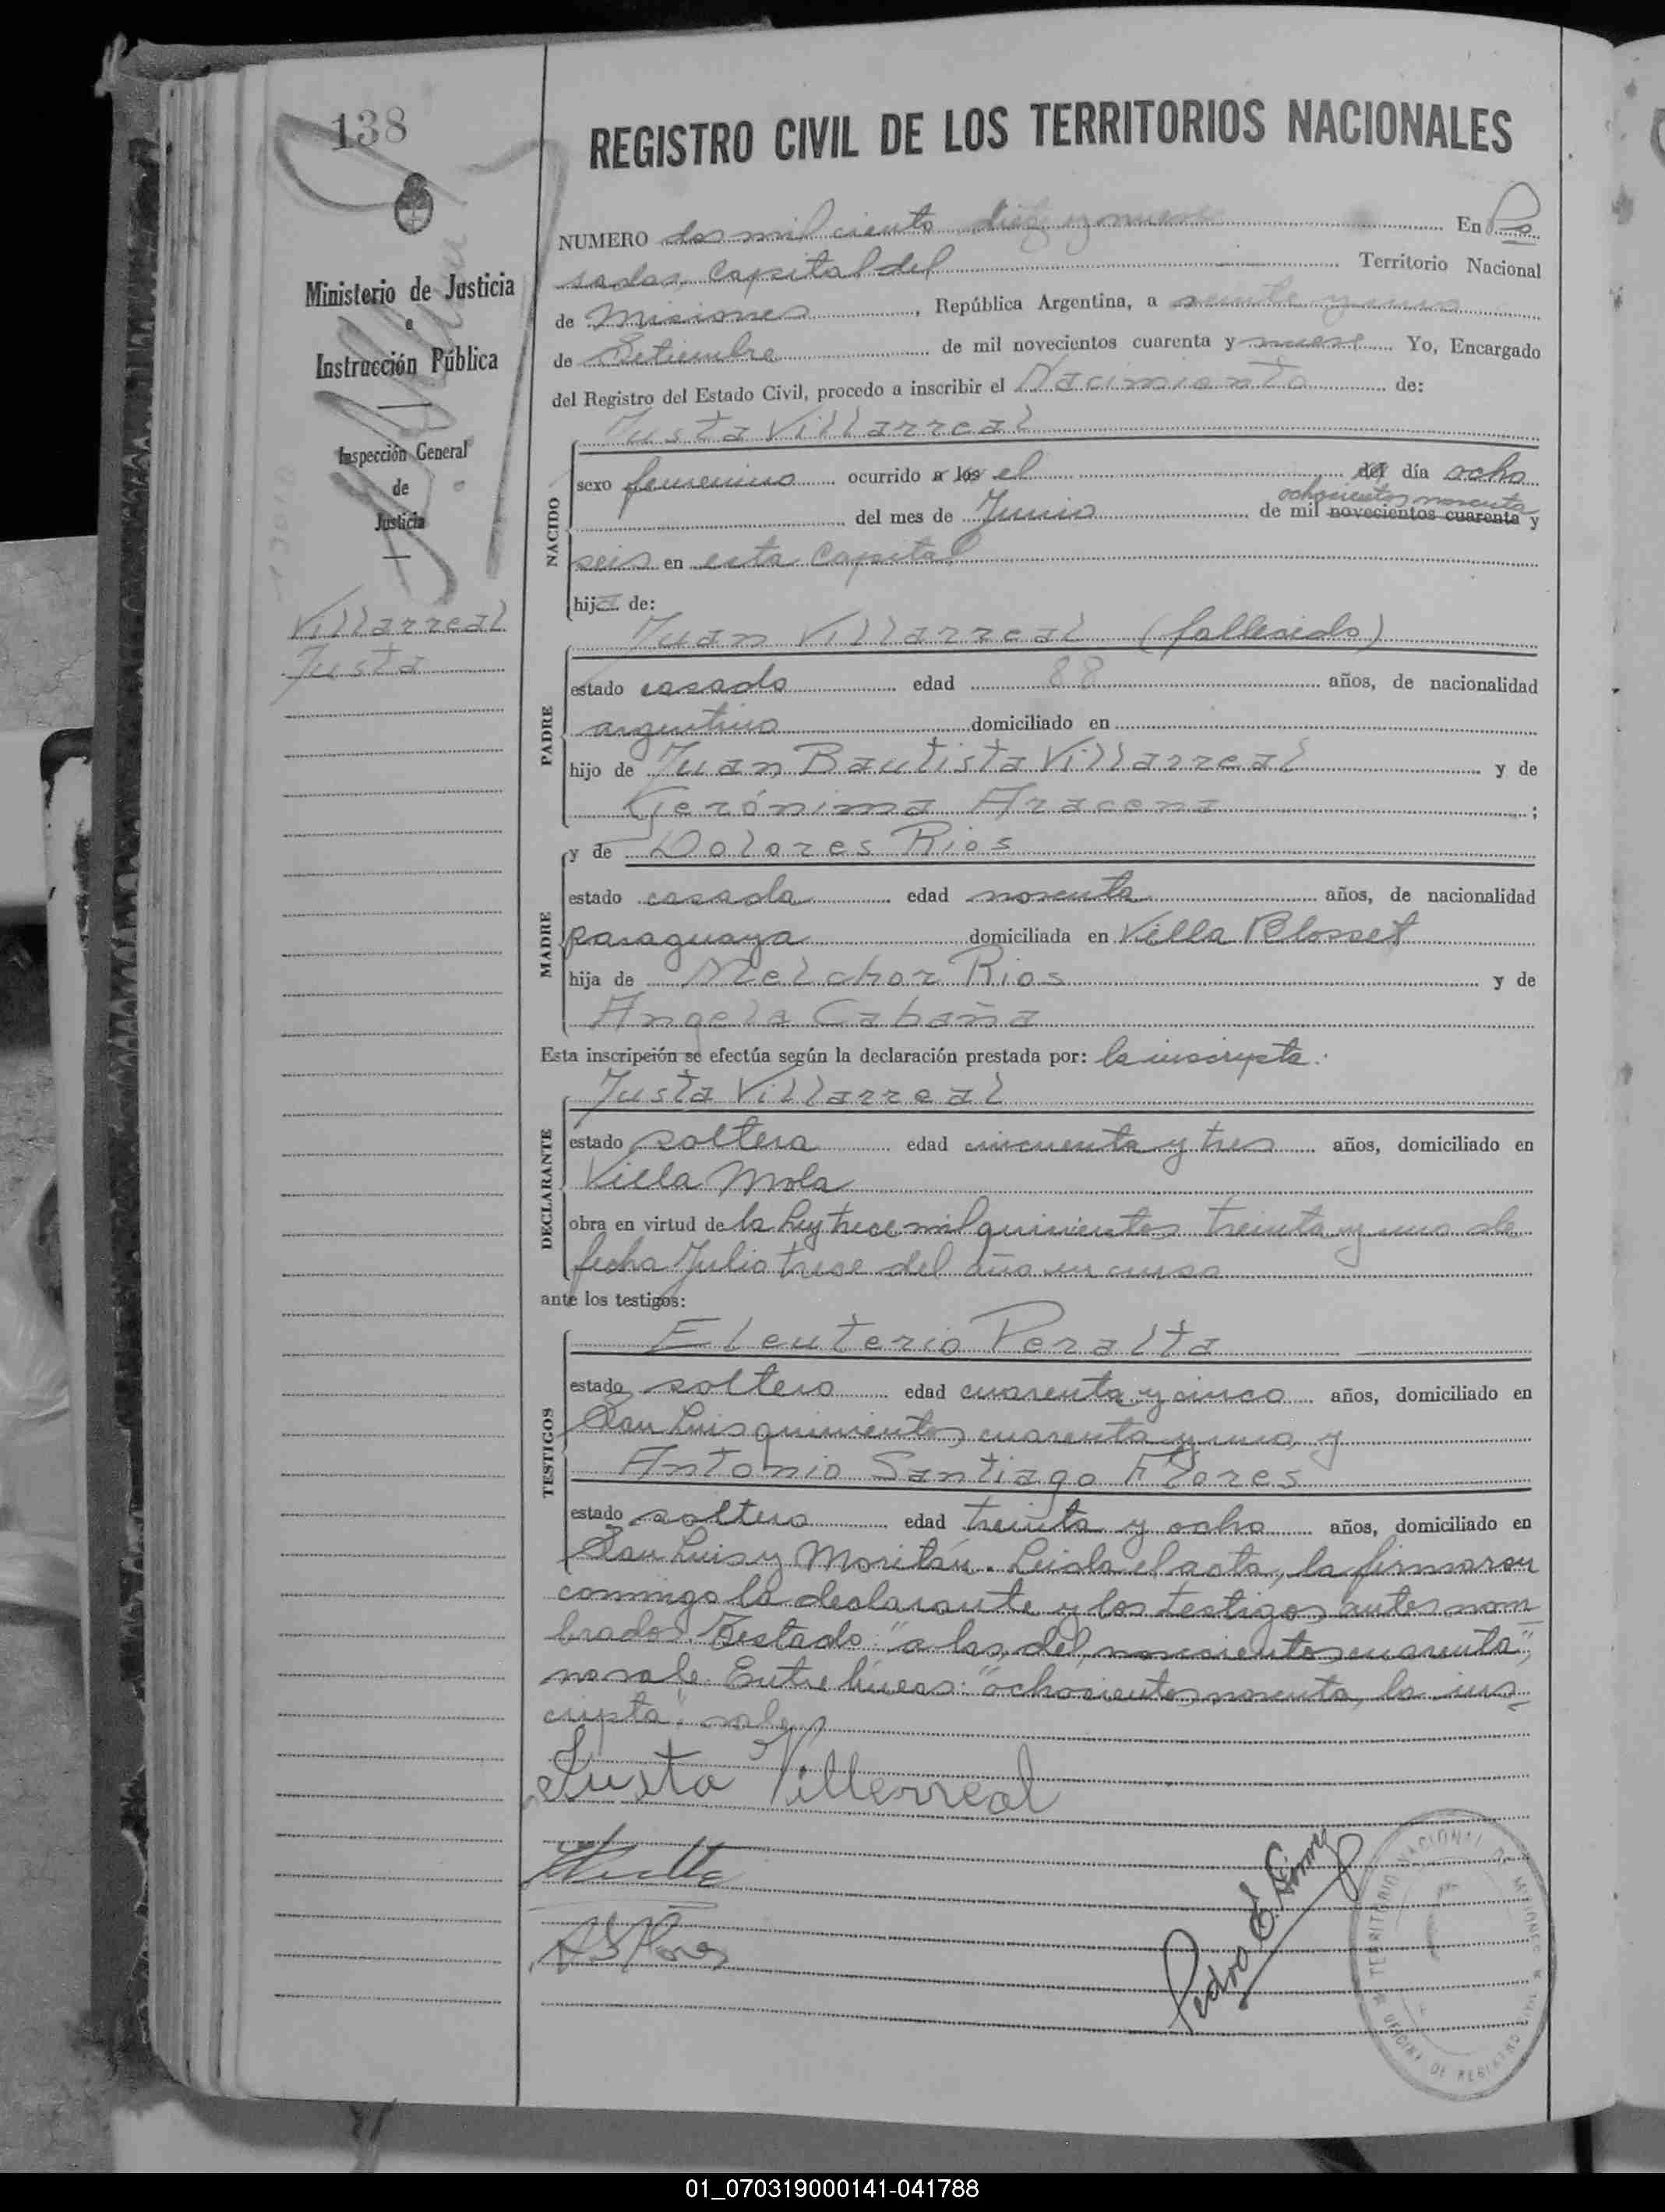 138
REGISTRO CIVIL DE LOS TERRITORIOS NACIONALES
NUMERO dos mil ciento diez y nueve En Po
sadas, Capital del Territorio Nacional
de Misiones, República Argentina, a veinte y uno
de Setiembre de mil novecientos cuarenta y nueve Yo, Encargado
del Registro del Estado Civil, procedo a inscribir el Nacimiento de:
Ministerio de Justicia
e
Instrucción Pública
Inspección General
de
Justicia
Villarreal
Justa
NACIDO
Justa Villarreal
sexo femenino ocurrido a las el del día ocho
ochocientos noventa
del mes de Junio de mil novecientos cuarenta y
seis en esta Capital
hija de:
PADRE
Juan Villarreal (fallecido)
estado casado edad 88 años, de nacionalidad
argentino domiciliado en
hijo de Juan Bautista Villarreal y de
Gerónima Aracena ;
MADRE
y de Dolores Rios
estado casada edad noventa años, de nacionalidad
paraguaya domiciliada en Villa Blosset
hija de Melchor Rios y de
Angela Cabaña
Esta inscripción se efectúa según la declaración prestada por: la inscripta:
DECLARANTE
Justa Villarreal
estado soltera edad cincuenta y tres años, domiciliado en
Villa Mola
obra en virtud de la Ley trece mil quinientos treinta y uno de
fecha Julio trece del año en curso
ante los testigos:
TESTIGOS
Eleuterio Peralta
estado soltero edad cuarenta y cinco años, domiciliado en
San Luis quinientos cuarenta y uno y
Antonio Santiago Flores
estado soltero edad treinta y ocho años, domiciliado en
San Luis y Moritán. Leida el acta, la firmaron
conmigo la declarante y los testigos antes nom
brados. Testado: "a las, del, novecientos cuarenta",
no vale. Entre líneas: "ochocientos noventa, la ins
cripta", vale
Justa Villerreal
A S Flores
Pedro E.
TERRITORIO NACIONAL DE MISIONES
OFICINA DE REGISTRO CIVIL
01_070319000141-041788